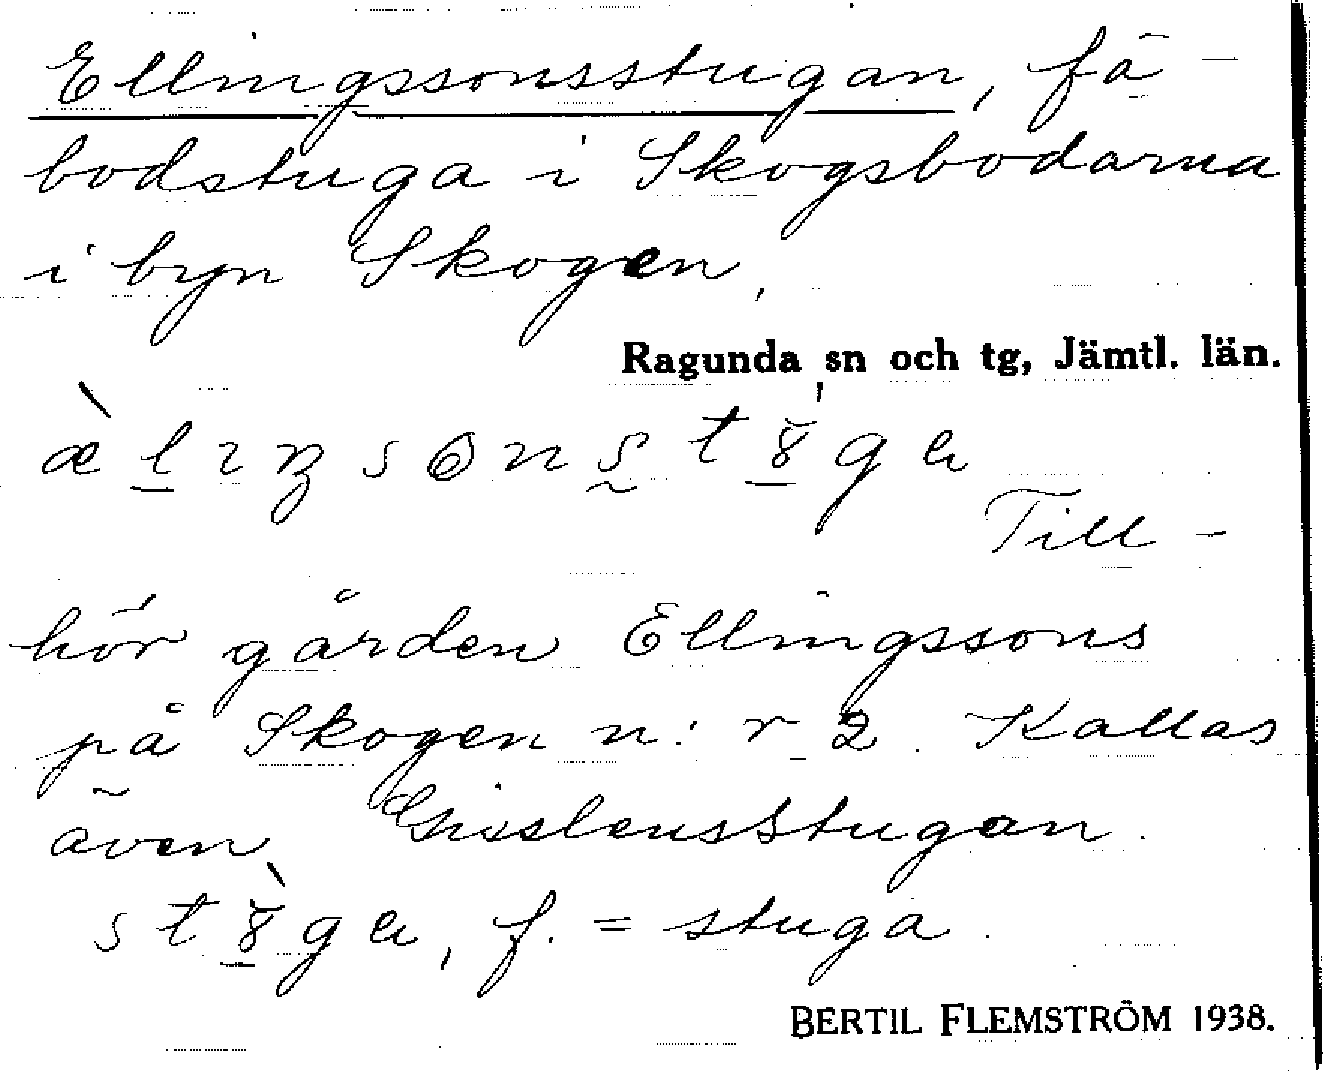 Ellingssonsstugan, fä-
bodstuga i Skogsbodarna
i byn Skogen,
Ragunda sn och tg, Jämtl. län.
Till-
hör gården Ellingssons
på Skogen n:r 2. Kallas
även Gisslensstugan.
f. = stuga.
BERTIL FLEMSTRÖM 1938.